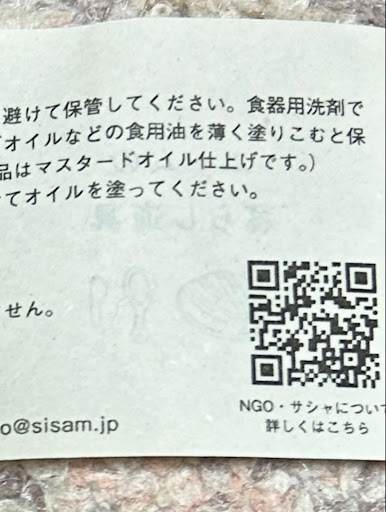 避けて保管してください。食器用洗剤で
オイルなどの食用油を薄く塗りこむと保
品はマスタードオイル仕上げです。)
てオイルを塗ってください。
せん。
NGO・サシャについて
詳しくはこちら
o@sisam.jp